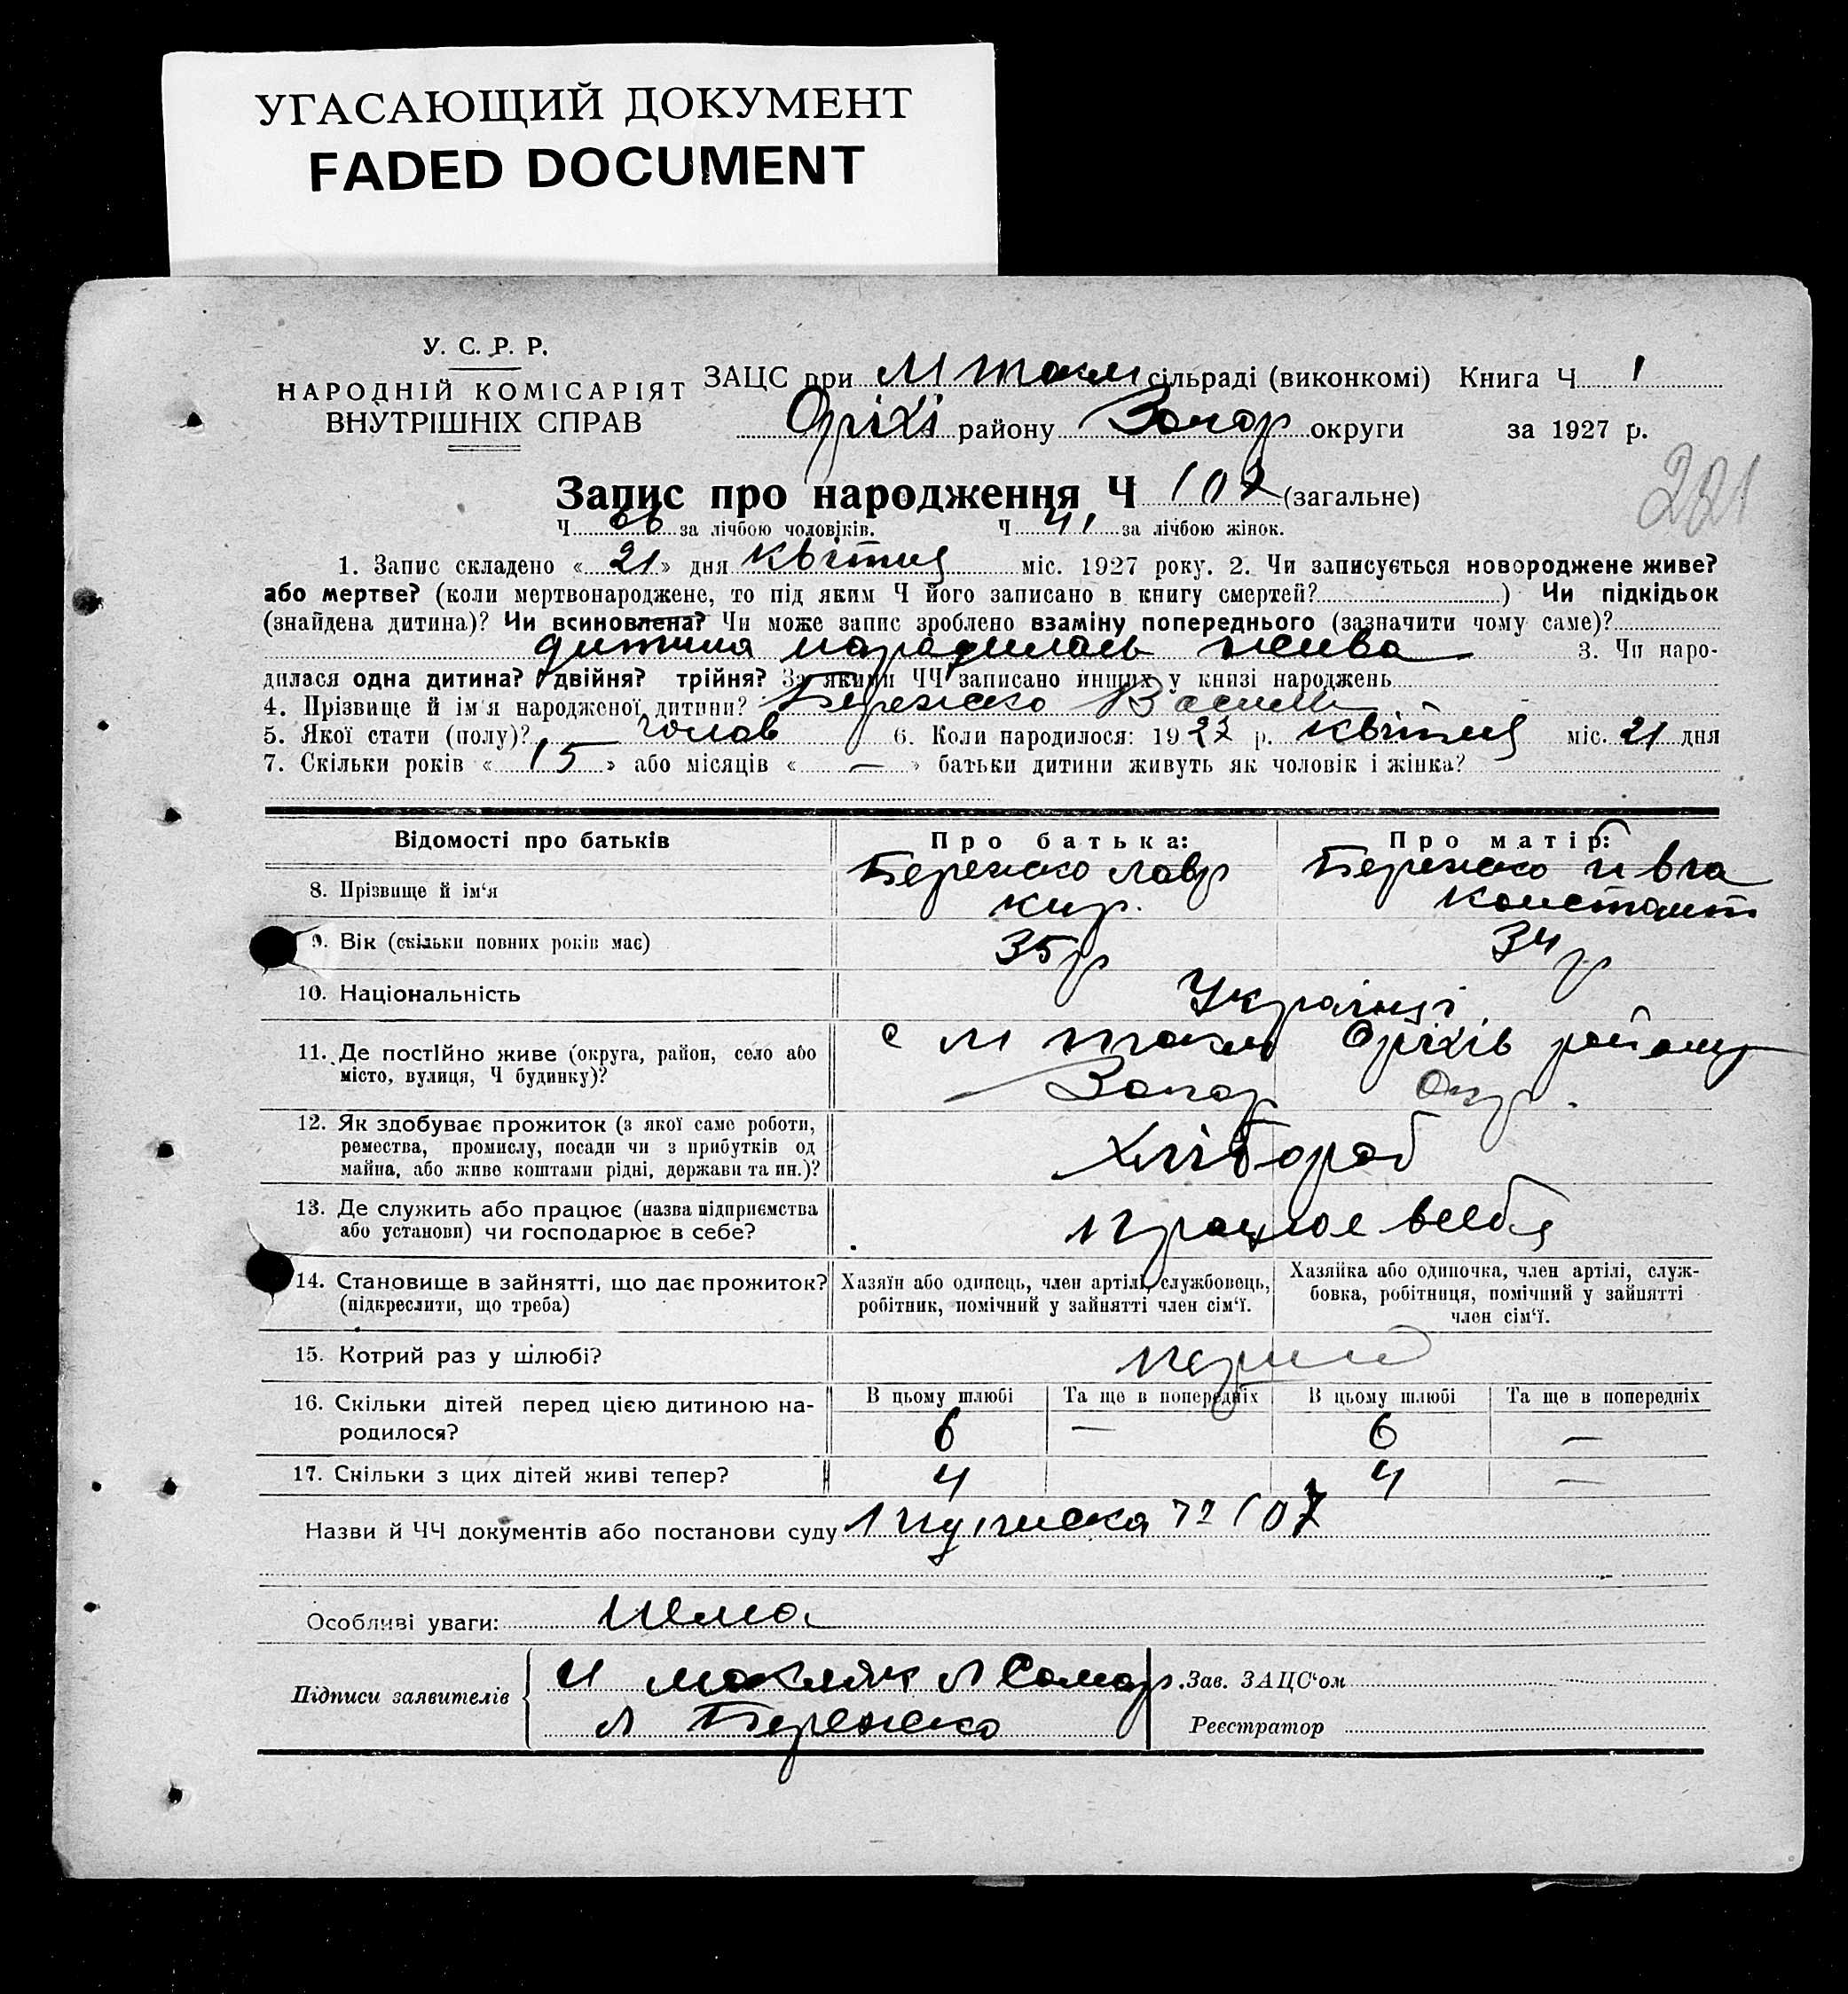 УГАСАЮЩИЙ ДОКУМЕНТ
FADED DOCUMENT
У. С. Р. Р.
НАРОДНІЙ КОМІСАРІЯТ
ВНУТРІШНІХ СПРАВ
ЗАЦС при М Токм сільраді (виконкомі) Книга Ч 1
Оріхі району Запор округи за 1927 р.
281
Запис про народження Ч 107 (загальне)
Ч 66 за лічбою чоловіків. Ч 41 за лічбою жінок.
1. Запис складено « 21 » дня квітня міс. 1927 року. 2. Чи записується новороджене живе?
або мертве? (коли мертвонароджене, то під яким Ч його записано в книгу смертей? ) Чи підкідьок
(знайдена дитина)? Чи всиновлена? Чи може запис зроблено взаміну попереднього (зазначити чому саме)?
дитина народилась жива 3. Чи наро-
дилася одна дитина? двійня? трійня? За якими ЧЧ записано инших у книзі народжень
4. Прізвище й ім'я народженої дитини? Бережко Василь
5. Якої стати (полу)? чолов 6. Коли народилося: 1927 р. квітня міс. 21 дня
7. Скільки років « 15 » або місяців « — » батьки дитини живуть як чоловік і жінка?
Відомості про батьків Про батька: Про матір:
8. Прізвище й ім'я Бережко Лавр Бережко Ивга
кир. Констант
9. Вік (скільки повних років має) 35 р 34 р
10. Національність Українці
11. Де постійно живе (округа, район, село або місто, вулиця, Ч будинку)? с М Токм Оріхів району
Запор Окр.
12. Як здобуває прожиток (з якої саме роботи,
ремества, промислу, посади чи з прибутків од
майна, або живе коштами рідні, держави та ин.)? Хлібороб
13. Де служить або працює (назва підприємства
або установи) чи господарює в себе? працює всебя
14. Становище в зайнятті, що дає прожиток? (підкреслити, що треба)
Хазяїн або одинець, член артілі, службовець,
робітник, помічний у зайнятті член сім'ї.
Хазяйка або одиночка, член артілі, служ-
бовка, робітниця, помічний у зайнятті
член сім'ї.
15. Котрий раз у шлюбі? перший
В цьому шлюбі Та ще в попередніх В цьому шлюбі Та ще в попередніх
16. Скільки дітей перед цією дитиною на-
родилося? 6 — 6 —
17. Скільки з цих дітей живі тепер? 4 4 —
Назви й ЧЧ документів або постанови суду 107
Особливі уваги: нема
Підписи заявителів И Л Самар. Зав. ЗАЦС'ом
Л Бережко Реєстратор